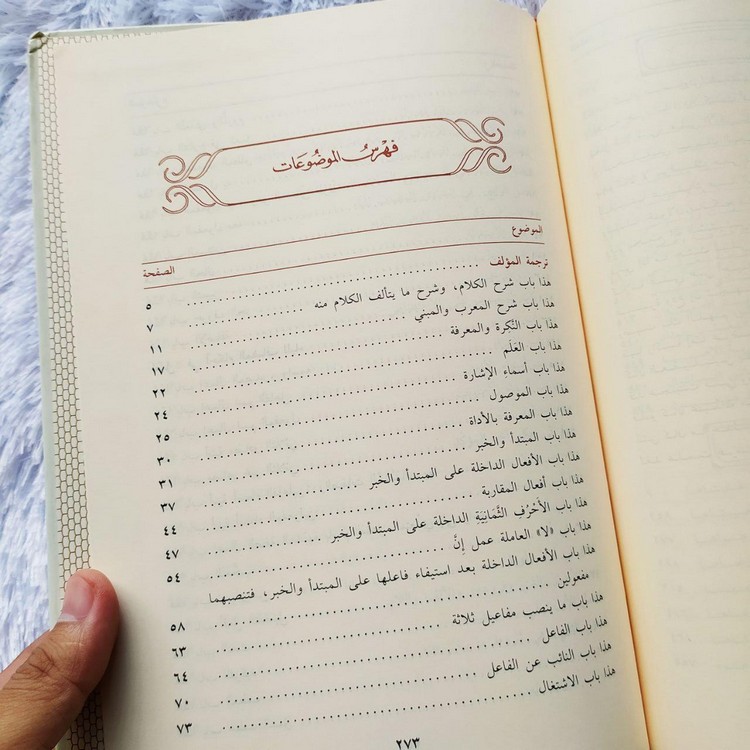 فهرس الموضُوعَات
الموضوع الصفحة
ترجمة المؤلف ........ ٥
هذا باب شرح الكلام، وشرح ما يتألف الكلام منه ........ ٧
هذا باب شرح المعرب والمبني ........ ١١
هذا باب النَّكرة والمعرفة ........ ١٧
هذا باب العَلَم ........ ٢٢
هذا باب أسماء الإشارة ........ ٢٤
هذا باب الموصول ........ ٢٥
هذا باب المعرفة بالأداة ........ ٣٠
هذا باب المبتدأ والخبر ........ ٣١
هذا باب الأفعال الداخلة على المبتدأ والخبر ........ ٣٧
هذا باب أفعال المقاربة ........ ٤٤
هذا باب الأَحْرُفِ الثَّمَانِيَةِ الداخلة على المبتدأ والخبر ........ ٤٧
هذا باب «لا» العاملة عمل إنَّ ........ ٥٤
هذا باب الأفعال الداخلة بعد استيفاء فاعلها على المبتدأ والخبر، فتنصبهما
مفعولين ........ ٥٨
هذا باب ما ينصب مفاعيل ثلاثة ........ ٦٣
هذا باب الفاعل ........ ٦٤
هذا باب النائب عن الفاعل ........ ٧٠
هذا باب الاشتغال ........ ٧٣
٢٧٣